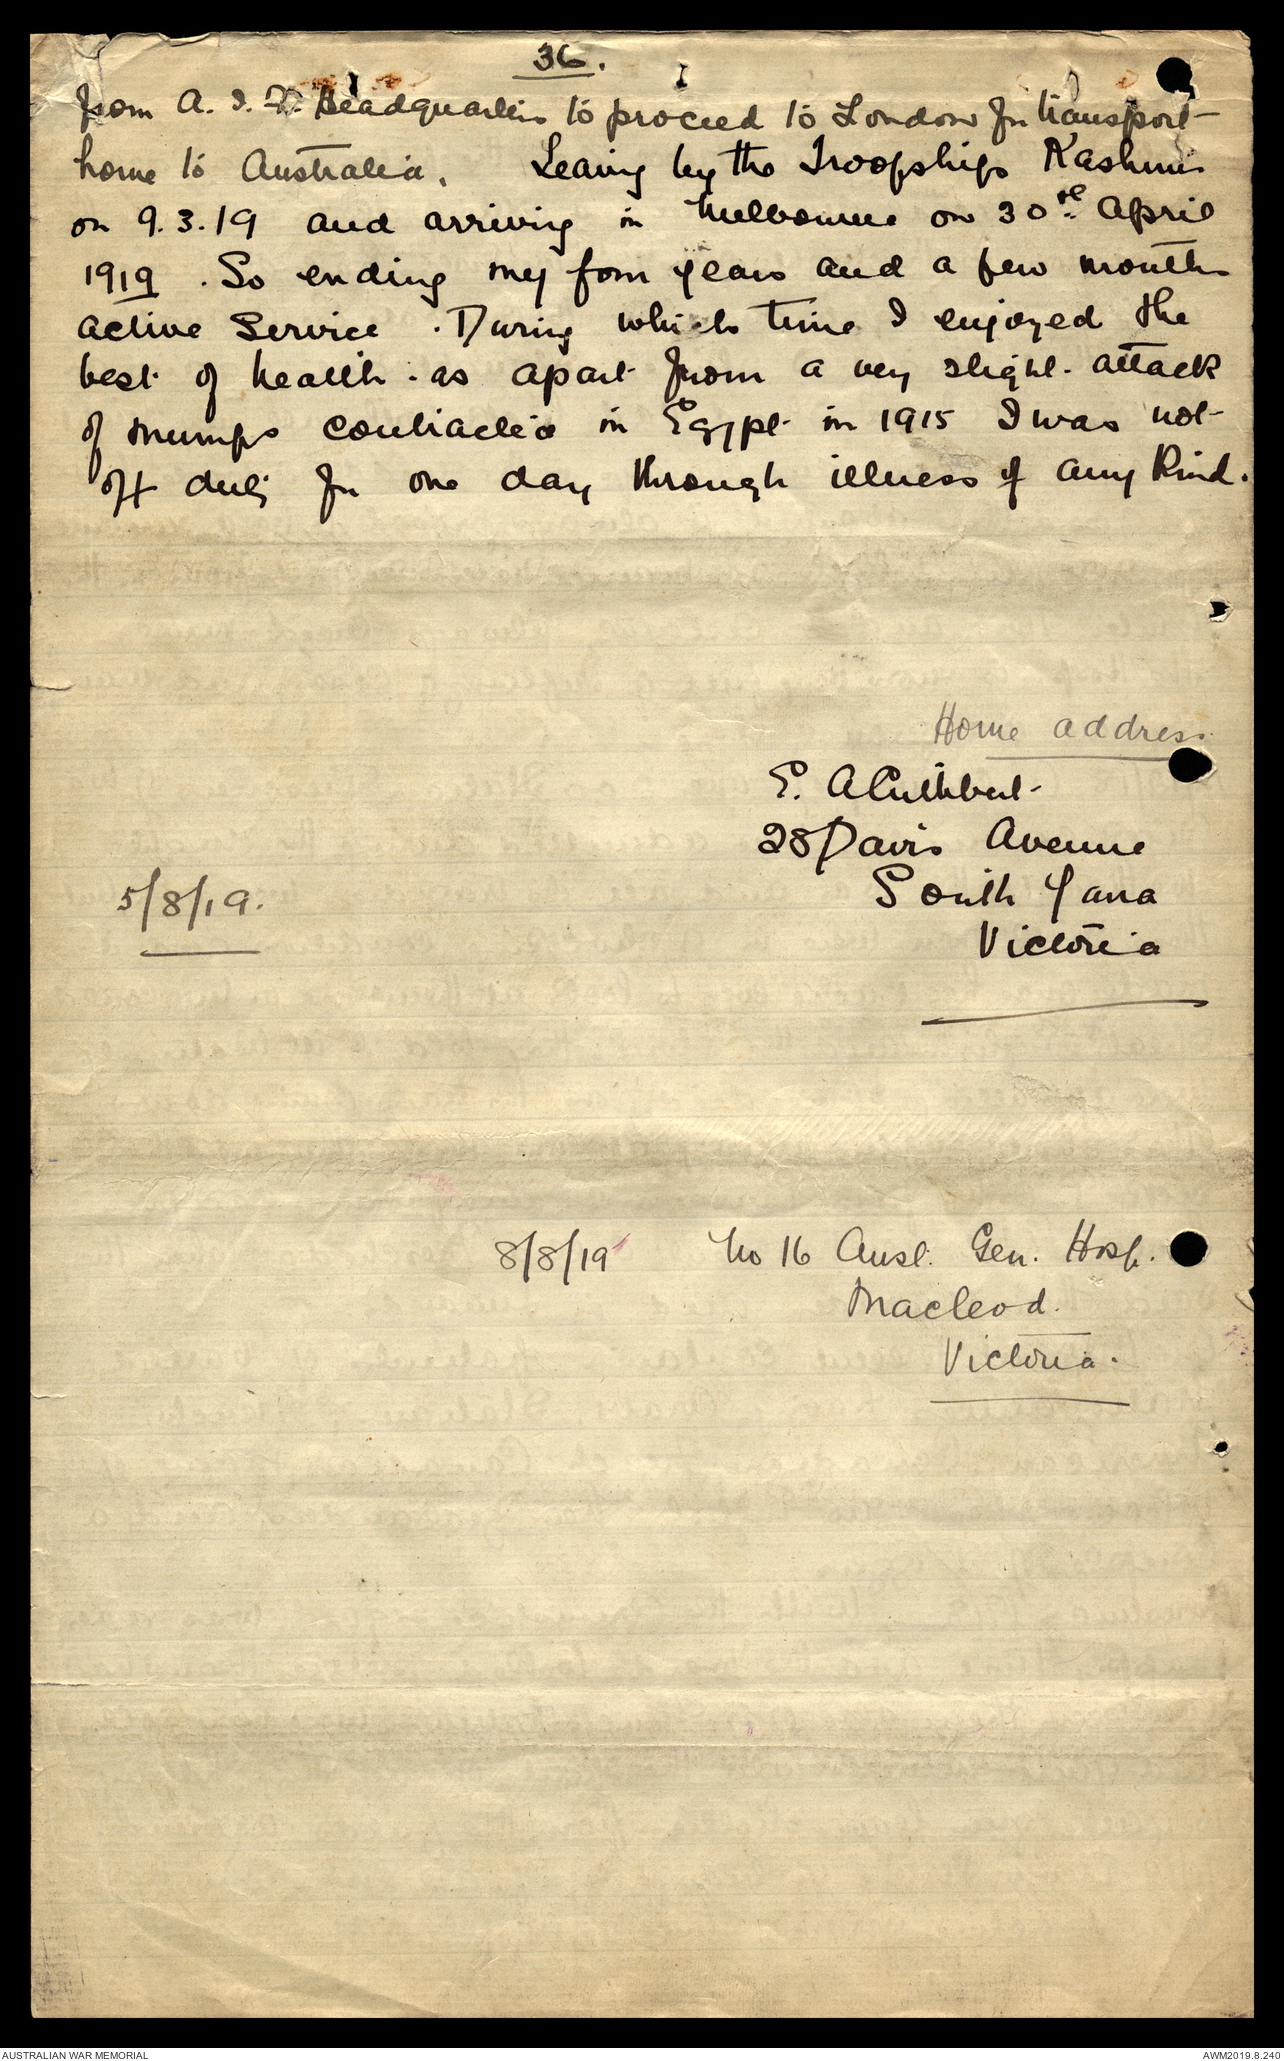 36.
from A. I. F. Headquarters to proceed to London for transport
home to Australia. Leaving by the Troopship Kashmir
on 9.3.19 and arriving in Melbourne on 30th April
1919. So ending my four years and a few months
active Service. During which time I enjoyed the
best of health. as apart from a very slight attack
of mumps contracted in Egypt in 1915 I was not
off duty for one day through illness of any kind.
Home address
E. A Cuthbert
28 Davis Avenue
South Yarra
5/8/19.
Victoria
8/8/19 No 16 Aust. Gen. Hosp.
Macleod.
Victoria.
AUSTRALIAN WAR MEMORIAL
AWM2019.8.240